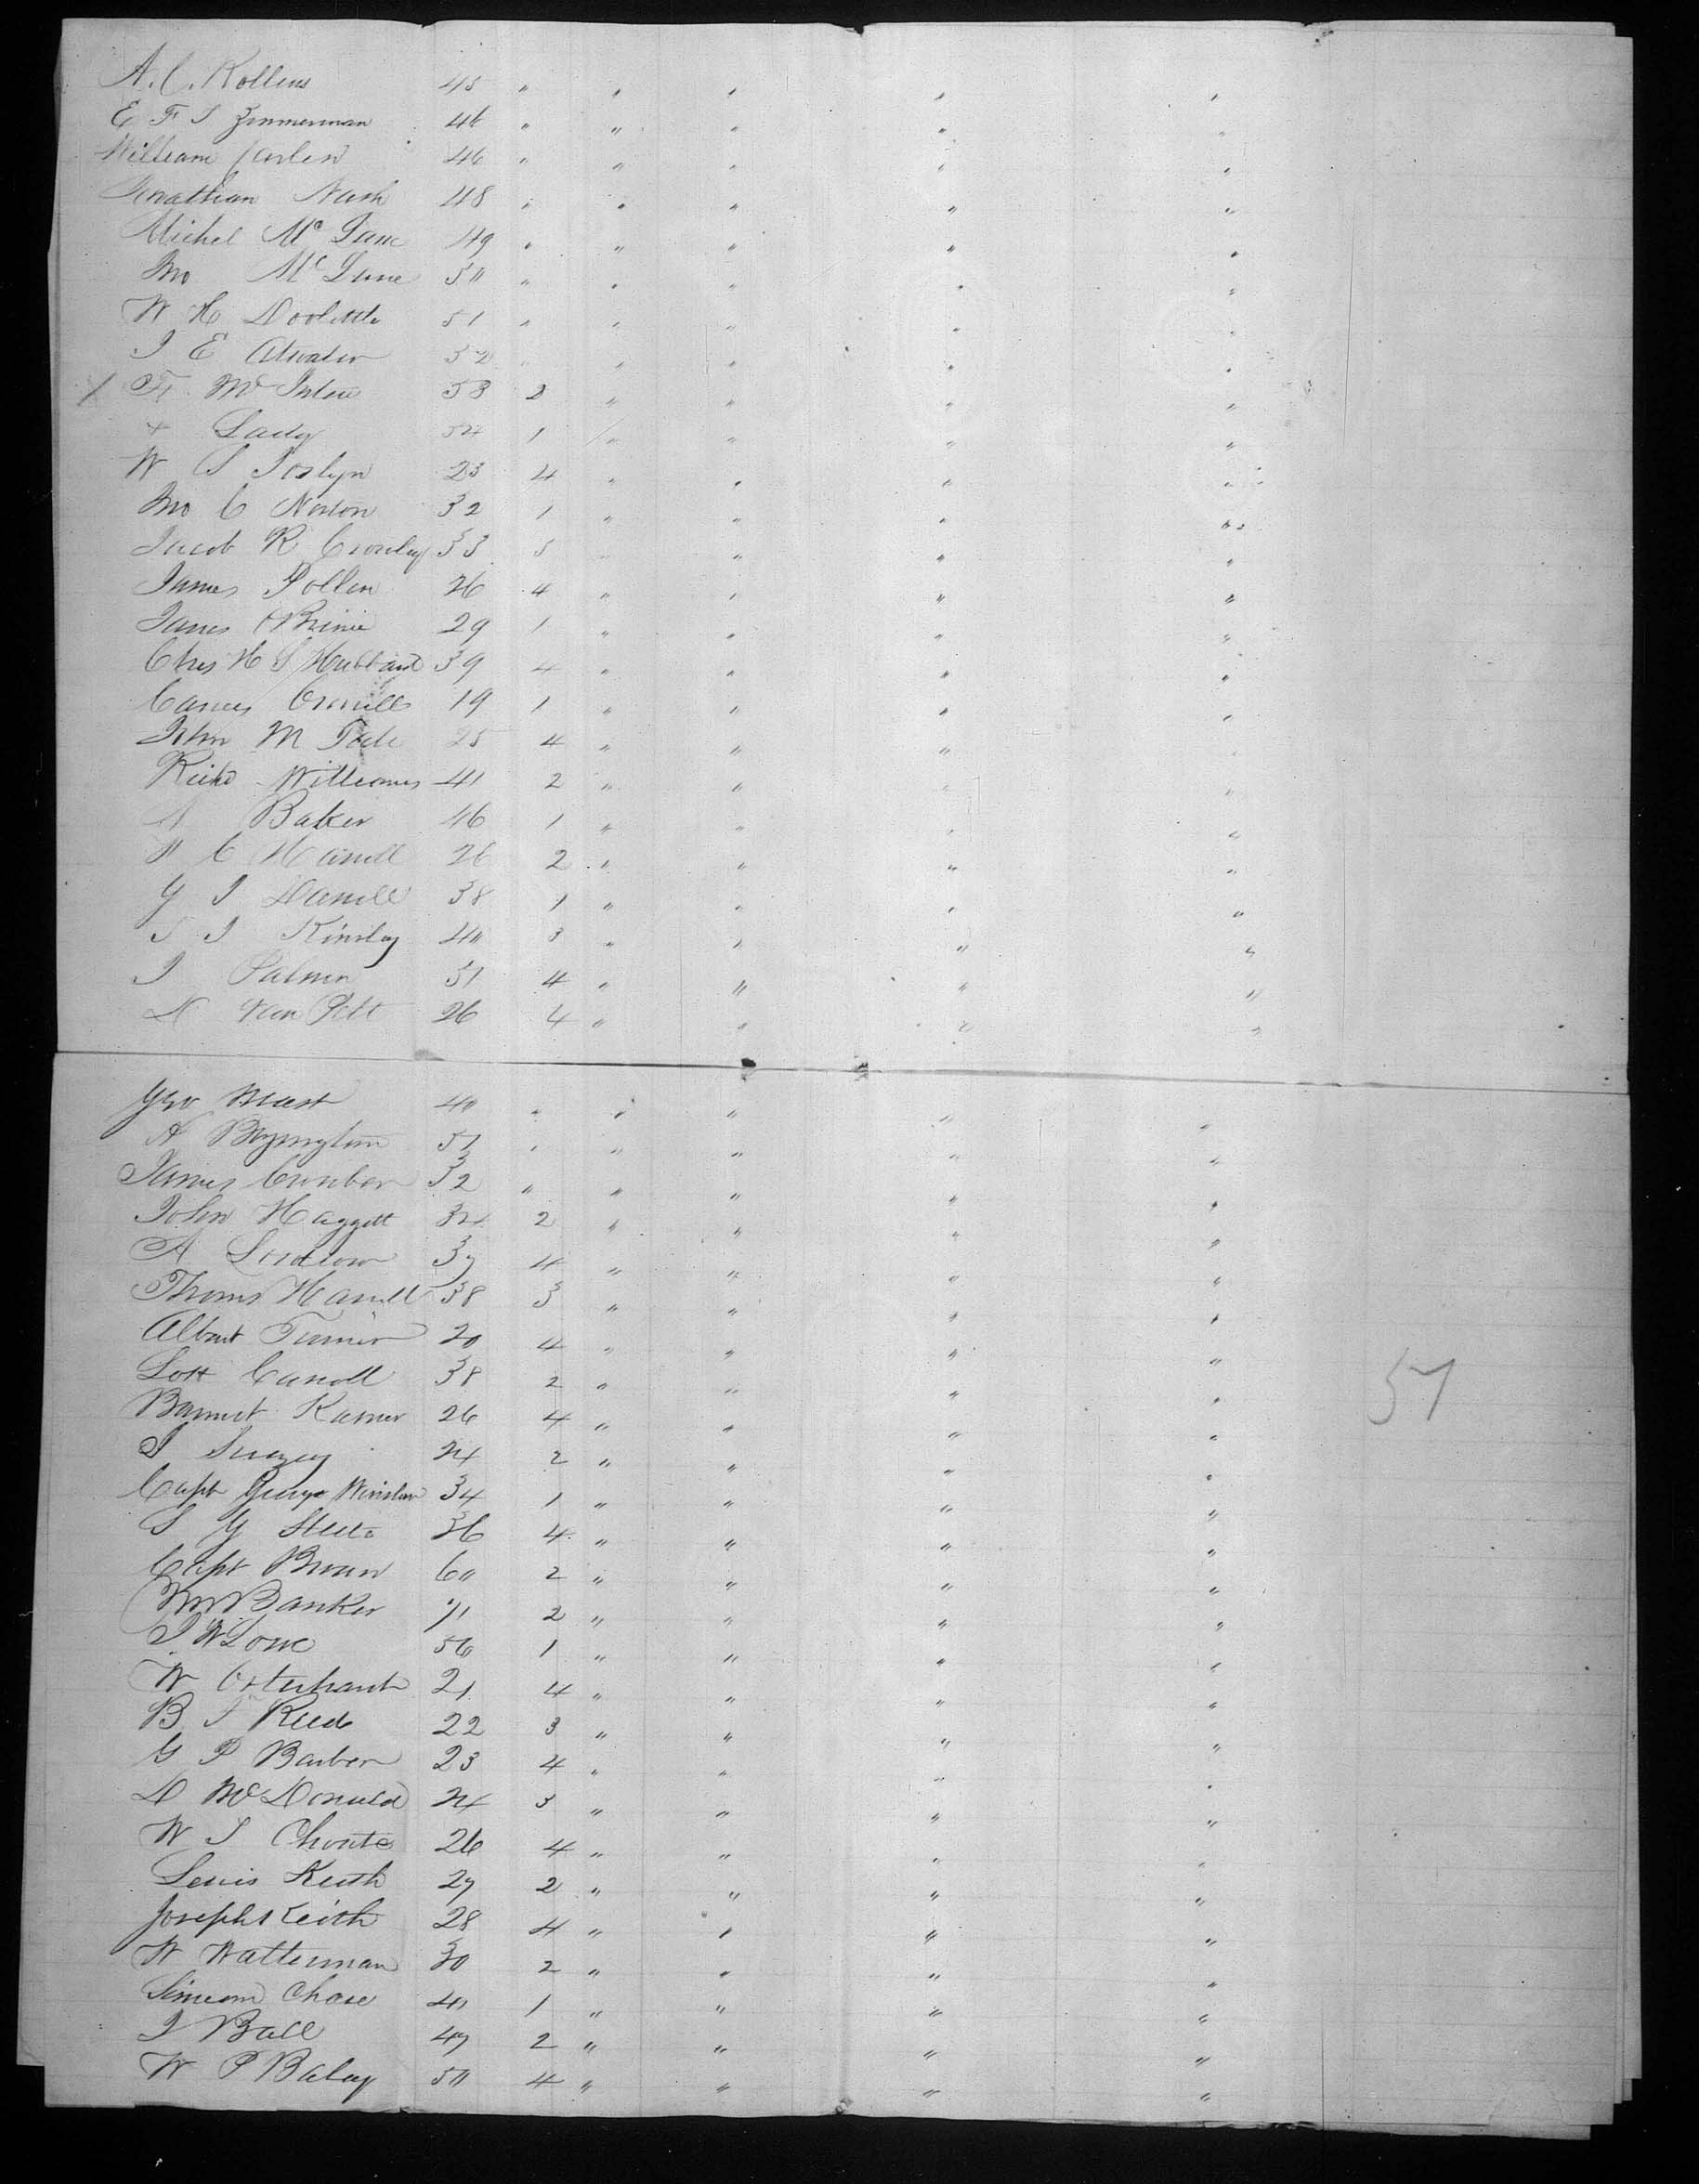 A. C. Rollins 45 " " " " "
E F S Zimmerman 46 " " " " "
William Carlin 46 " " " " "
Jonathan Nash 48 " " " " "
Michel Mc Lane 49 " " " " "
Jno Mc Lane 50 " " " " "
W H Doolittle 51 " " " " "
J E Atwater 52 " " " " "
F. Mc 53 2 " " " "
+ Lady 54 1 " " " "
W S Joslyn 23 4 " " " "
Jno C Norton 32 1 " " " "
Jacob R Crowley 33 5 " " " "
James Pollen 26 4 " " " "
James O'Brine 29 1 " " " "
Chas H S Hubbard 39 4 " " " "
19 1 " " " "
John M 25 4 " " " "
Williams 41 2 " " " "
Baker 46 1 " " " "
C Harrell 26 2 " " " "
G J Daniell 38 1 " " " "
S J Kinsley 40 3 " " " "
J Palmer 51 4 " " " "
D Van Pelt 26 4 " " " "
Geo Mast 40 " " " " "
A Byington 51 " " " " "
James 32 " " " " "
John Haggett 34 2 " " " "
A Ludlow 37 4 " " " "
Thomas Harrell 38 3 " " " "
Albert Turner 20 4 " " " "
Lott Carroll 38 2 " " " " 57
Barnet Karner 26 4 " " " "
S 24 2 " " " "
Capt George Winslow 34 1 " " " "
S G Steele 36 4 " " " "
Capt Brown 60 2 " " " "
Wm Banker 71 2 " " " "
J W Lowe 56 1 " " " "
W Osterhaut 21 4 " " " "
B J Reed 22 3 " " " "
G P Barber 23 4 " " " "
D McDonald 24 3 " " " "
W S Choate 26 4 " " " "
Lewis Keith 27 2 " " " "
Joseph Keith 28 4 " " " "
W Watterman 30 2 " " " "
Simeon Chase 40 1 " " " "
J Ball 47 2 " " " "
W P Baley 50 4 " " " "